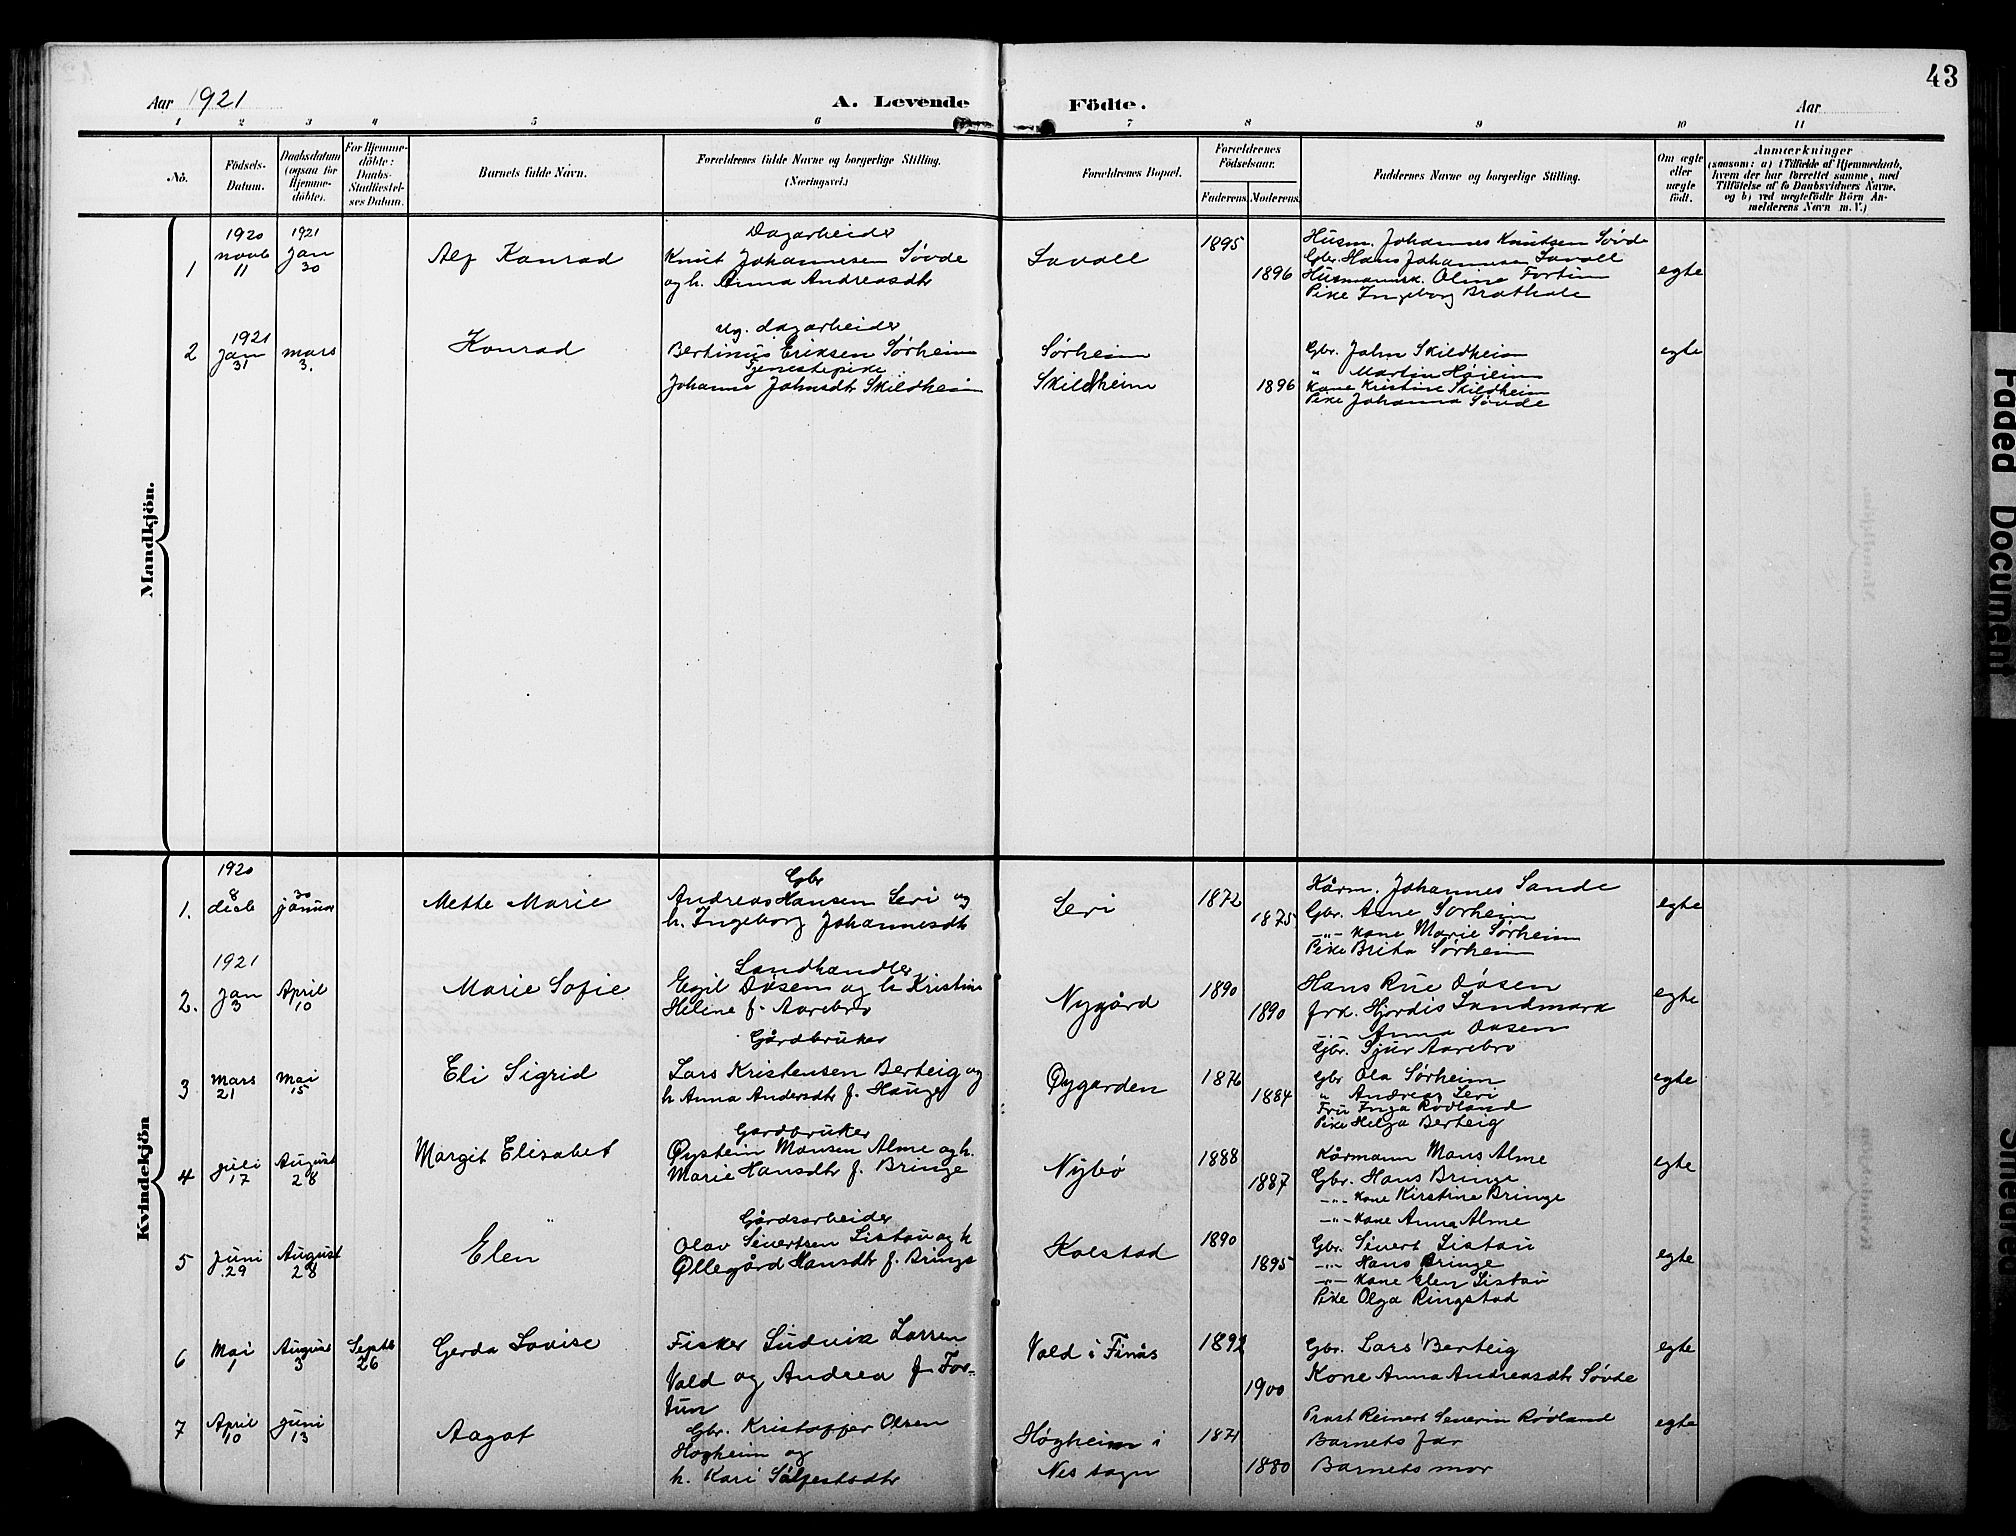 43
Aar 1921
A. Levende Födte.
Aar
1 2 3 4 5 6 7 8 9 10 11
No.
Födsels-Datum.
Daabsdatum (ogsaa for Hjemmedöbte).
For Hjemmedöbte: Daabs-Stadfæstelses Datum.
Barnets fulde Navn.
Forældrenes fulde Navne og borgerlige Stilling. (Næringsvei.)
Forældrenes Bopæl.
Forældrenes Födselsaar.
Faderens Moderens
Faddernes Navne og borgerlige Stilling.
Om ægte eller uægte födt.
Anmærkninger
(saasom: a) i Tilfælde af Hjemmedaab, hvem der har forrettet samme, med Tilföielse af to Daabsvidners Navne, og b) ved uægtefödte Börn Anmelderens Navn m. V.)
Mandkjön.
1
1920 novb 11
1921 Jan 30
Alf Konrad
Dagarbeider
Knut Johannesen Søvde
og h. Anna Andreasdtr
1895
1896
Husm. Johannes Knutsen Søvde
Gbr. Hans Johannesen
Husmannsk. Oline Fortun
Pike Ingeborg
egte
2
1921 Jan 31
mars 3.
Konrad
Ug. dagarbeider
Bertinus Eriksen Sørheim
Tjenestepike
Johanne Johnsdtr Skildheim
Sørheim
Skildheim
1896
Gbr. John Skildheim
" Martin Høiheim
Kone Kristine Skildheim
Pike Johanna Søvde
egte
Kvindekjön
1.
1920 8 decb
30 januar
Mette Marie
Gbr
Andreas Hansen Leri og
h. Ingeborg Johannesdtr
Leri
1872
1875
Kårm. Johannes Sande
Gbr. Arne Sørheim
-"- Kone Marie Sørheim
Pike Brita Sørheim
egte
2.
1921 Jan 3
April 10
Marie Sofie
Landhandler
Egil Døsen og h Kristine
Helene f. Aarebro
Nygård
1890
1890
Hans Rue Døsen
frk. Hjørdis Landmark
-"- Anna Døsen
Gbr. Sjur Aarebro
egte
3
Mars 21
Mai 15
Eli Sigrid
Gårdbruker
Lars Kristensen Berteig og
h Anna Andersdtr f. Hauge
Øygarden
1876
1884
Gbr Ola Sørheim
" Andreas Leri
Fru Inga Rødland
Pike Helga Berteig
egte
4
Juli 17
August 28
Margit Elisabet
Gardbruker
Øystein Monsen Alme og h.
Marie Hansdtr f. Bringe
Nybø
1888
1887
Kårmann Mons Alme
Gbr. Hans Bringe
-"- Kone Kirstine Bringe
-"- Kone Anna Alme
egte
5
Juni 29
August 28
Elen
Gårdsarbeider
Olav Sivertsen Sistau og h
Øllegård Hansdtr f. Bringe
Kolstad
1890
1895
Gbr. Sivert Sistau
-"- Hans Bringe
-"- Kone Elen Sistau
Pike Olga Ringstad
egte
6
Mai 1
August 3
Septb 26
Gerda Lovise
Fisker Ludvik Larsen
Vold og Andrea f. For-
tun
Vold i Finås
1892
1900
Gbr. Lars Berteig
Kone Anna Andreasdtr Søvde
egte
7
April 10
Juni 13
Aagot
Gbr. Kristoffer Olsen
Høgheim og
h. Kari Såljestaddtr
Høgheim i
Nes sogn
1871
1880
Prost Reinert Severin Rødland
Barnets far
Barnets mor
egte
Faded Document
Smeared